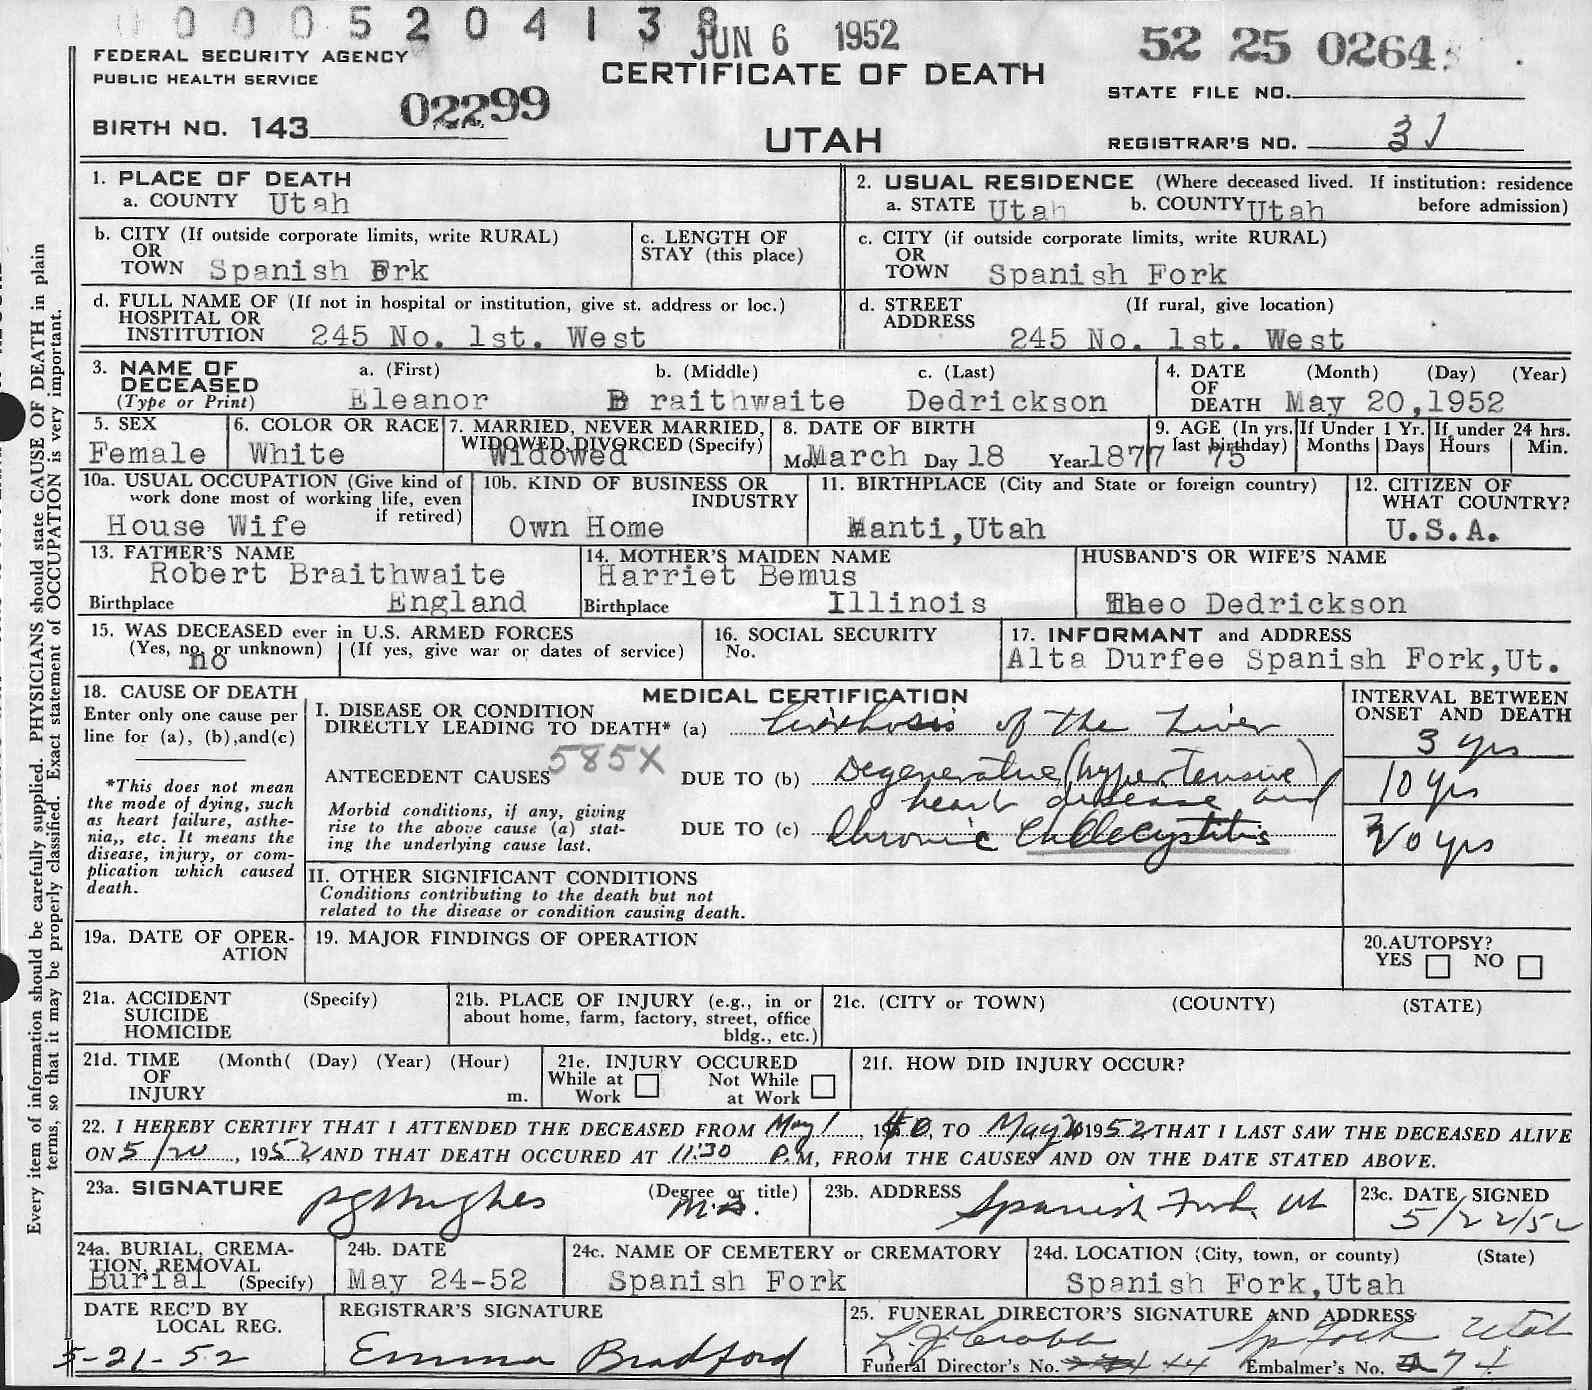 00052041 3 8
JUN 6 1952
52 25 0264
FEDERAL SECURITY AGENCY
PUBLIC HEALTH SERVICE
CERTIFICATE OF DEATH
STATE FILE NO.
02299
BIRTH NO. 143
UTAH
REGISTRAR'S NO. 31
1. PLACE OF DEATH
a. COUNTY Utah
2. USUAL RESIDENCE (Where deceased lived. If institution: residence before admission)
a. STATE Utah b. COUNTY Utah
b. CITY (If outside corporate limits, write RURAL)
OR
TOWN Spanish Frk
c. LENGTH OF
STAY (this place)
c. CITY (if outside corporate limits, write RURAL)
OR
TOWN Spanish Fork
d. FULL NAME OF (If not in hospital or institution, give st. address or loc.)
HOSPITAL OR
INSTITUTION 245 No. 1st. West
d. STREET (If rural, give location)
ADDRESS
245 No. 1st. West
3. NAME OF
DECEASED
(Type or Print)
a. (First) b. (Middle) c. (Last)
Eleanor B raithwaite Dedrickson
4. DATE (Month) (Day) (Year)
OF
DEATH May 20,1952
5. SEX
Female
6. COLOR OR RACE
White
7. MARRIED, NEVER MARRIED,
WIDOWED, DIVORCED (Specify)
Widowed
8. DATE OF BIRTH
Mo. March Day 18 Year 1877
9. AGE (In yrs.
last birthday)
75
If Under 1 Yr.
Months Days
If under 24 hrs.
Hours Min.
10a. USUAL OCCUPATION (Give kind of
work done most of working life, even
if retired)
House Wife
10b. KIND OF BUSINESS OR
INDUSTRY
Own Home
11. BIRTHPLACE (City and State or foreign country)
Manti,Utah
12. CITIZEN OF
WHAT COUNTRY?
U.S.A.
13. FATHER'S NAME
Robert Braithwaite
Birthplace England
14. MOTHER'S MAIDEN NAME
Harriet Bemus
Birthplace Illinois
HUSBAND'S OR WIFE'S NAME
Theo Dedrickson
15. WAS DECEASED ever in U.S. ARMED FORCES
(Yes, no, or unknown) (If yes, give war or dates of service)
no
16. SOCIAL SECURITY
No.
17. INFORMANT and ADDRESS
Alta Durfee Spanish Fork,Ut.
18. CAUSE OF DEATH
Enter only one cause per
line for (a), (b),and(c)
*This does not mean
the mode of dying, such
as heart failure, asthe-
nia,, etc. It means the
disease, injury, or com-
plication which caused
death.
MEDICAL CERTIFICATION
I. DISEASE OR CONDITION
DIRECTLY LEADING TO DEATH* (a) Cirrhosis of the Liver
585X
ANTECEDENT CAUSES DUE TO (b) Degenerative (hypertensive)
heart disease and
Morbid conditions, if any, giving
rise to the above cause (a) stat-
ing the underlying cause last.
DUE TO (c) Chronic Cholecystitis
INTERVAL BETWEEN
ONSET AND DEATH
3 yrs
10 yrs
20 yrs
II. OTHER SIGNIFICANT CONDITIONS
Conditions contributing to the death but not
related to the disease or condition causing death.
19a. DATE OF OPER-
ATION
19. MAJOR FINDINGS OF OPERATION
20.AUTOPSY?
YES NO
21a. ACCIDENT (Specify)
SUICIDE
HOMICIDE
21b. PLACE OF INJURY (e.g., in or
about home, farm, factory, street, office
bldg., etc.)
21c. (CITY or TOWN) (COUNTY) (STATE)
21d. TIME (Month( (Day) (Year) (Hour)
OF
INJURY m.
21e. INJURY OCCURED
While at Not While
Work at Work
21f. HOW DID INJURY OCCUR?
22. I HEREBY CERTIFY THAT I ATTENDED THE DECEASED FROM May 1, 1950, TO May 20 1952 THAT I LAST SAW THE DECEASED ALIVE
ON 5/20, 1952 AND THAT DEATH OCCURED AT 11:30 P.M, FROM THE CAUSES AND ON THE DATE STATED ABOVE.
23a. SIGNATURE (Degree or title)
Hughes M.D.
23b. ADDRESS Spanish Fork, Ut
23c. DATE SIGNED
5/22/52
24a. BURIAL, CREMA-
TION, REMOVAL
Burial (Specify)
24b. DATE
May 24-52
24c. NAME OF CEMETERY or CREMATORY
Spanish Fork
24d. LOCATION (City, town, or county) (State)
Spanish Fork,Utah
DATE REC'D BY
LOCAL REG.
5-21-52
REGISTRAR'S SIGNATURE
Emma Bradford
25. FUNERAL DIRECTOR'S SIGNATURE AND ADDRESS
Sp Fork Utah
Funeral Director's No. 44 Embalmer's No. 74
Every item of information should be carefully supplied. PHYSICIANS should state CAUSE OF DEATH in plain
terms, so that it may be properly classified. Exact statement of OCCUPATION is very important.